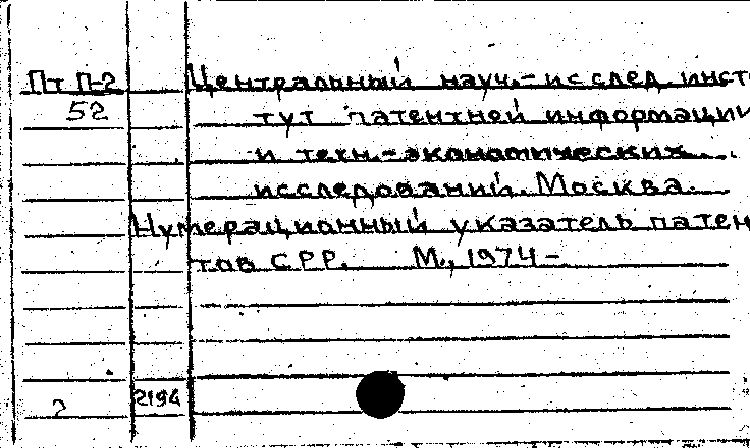 Пт П-2 Центральный науч.-исслед. инсти
52 тут патентной информации
и техн.-экономических
исследований. Москва.
Нумерационный указатель патен
тов СРР. М., 1974-
2194